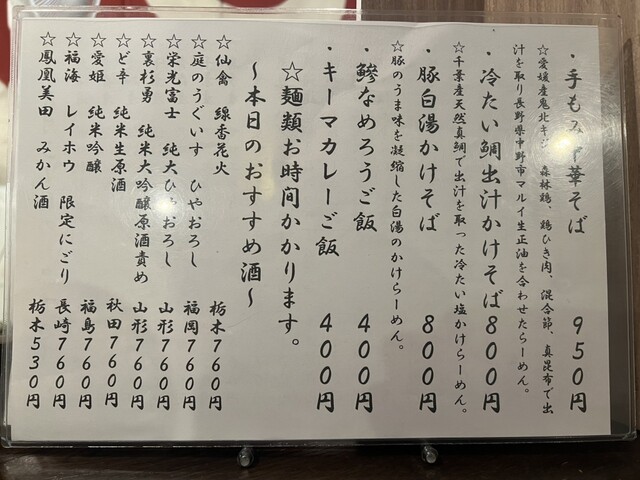 ・手もみ中華そば 950円
☆愛媛産鬼北キジ、森林鶏、鶏ひき肉、混合節、真昆布で出
汁を取り長野県中野市マルイ生正油を合わせたらーめん。
・冷たい鯛出汁かけそば 800円
☆千葉産天然真鯛で出汁を取った冷たい塩かけらーめん。
・豚白湯かけそば 800円
☆豚のうま味を凝縮した白湯のかけらーめん。
・鯵なめろうご飯 400円
・キーマカレーご飯 400円
☆麺類お時間かかります。
～本日のおすすめ酒～
☆仙禽 線香花火 栃木760円
☆庭のうぐいす ひやおろし 福岡760円
☆栄光冨士 純大ひやおろし 山形760円
☆裏杉勇 純米大吟醸原酒責め 山形760円
☆ど辛 純米生原酒 秋田760円
☆愛姫 純米吟醸 福島760円
☆福海 レイホウ 限定にごり 長崎760円
☆鳳凰美田 みかん酒 栃木530円